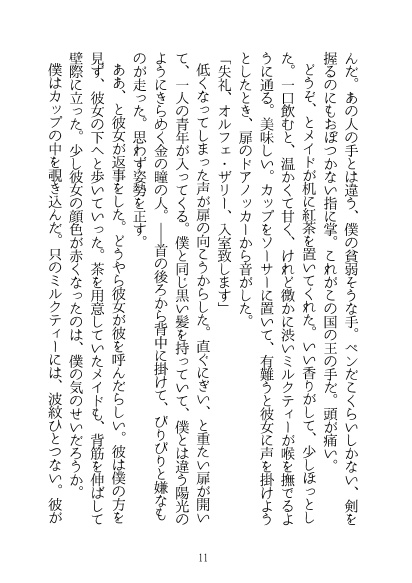 んだ。あの人の手とは違う、僕の貧弱そうな手。ペンだこくらいしかない、剣を
握るのにもおぼつかない指に掌。これがこの国の王の手だ。頭が痛い。
　どうぞ、とメイドが机に紅茶を置いてくれた。いい香りがして、少しほっとし
た。一口飲むと、温かくて甘く、けれど微かに渋いミルクティーが喉を撫でるよ
うに通る。美味しい。カップをソーサーに置いて、有難うと彼女に声を掛けよう
としたとき、扉のドアノッカーから音がした。
「失礼、オルフェ・ザリー、入室致します」
　低くなってしまった声が扉の向こうからした。直ぐにぎい、と重たい扉が開い
て、一人の青年が入ってくる。僕と同じ黒い髪を持っていて、僕とは違う陽光の
ようにきらめく金の瞳の人。――首の後ろから背中に掛けて、びりびりと嫌なも
のが走った。思わず姿勢を正す。
　ああ、と彼女が返事をした。どうやら彼女が彼を呼んだらしい。彼は僕の方を
見ず、彼女の下へと歩いていった。茶を用意していたメイドも、背筋を伸ばして
壁際に立った。少し彼女の顔色が赤くなったのは、僕の気のせいだろうか。
　僕はカップの中を覗き込んだ。只のミルクティーには、波紋ひとつない。彼が
11